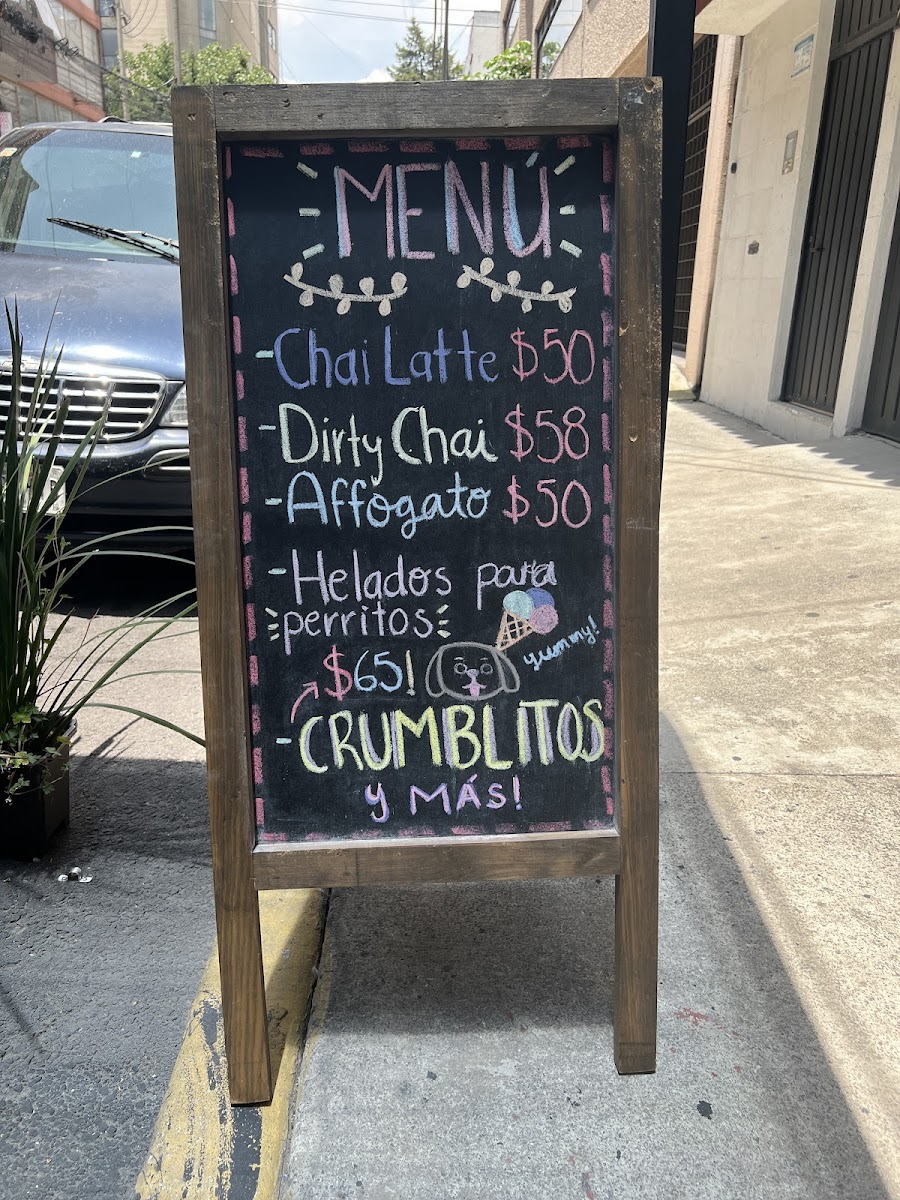 MENÚ
-Chai Latte $50
-Dirty Chai $58
-Affogato $50
-Helados para
perritos
yummy!
$65!
-CRUMBLITOS
y MÁS!